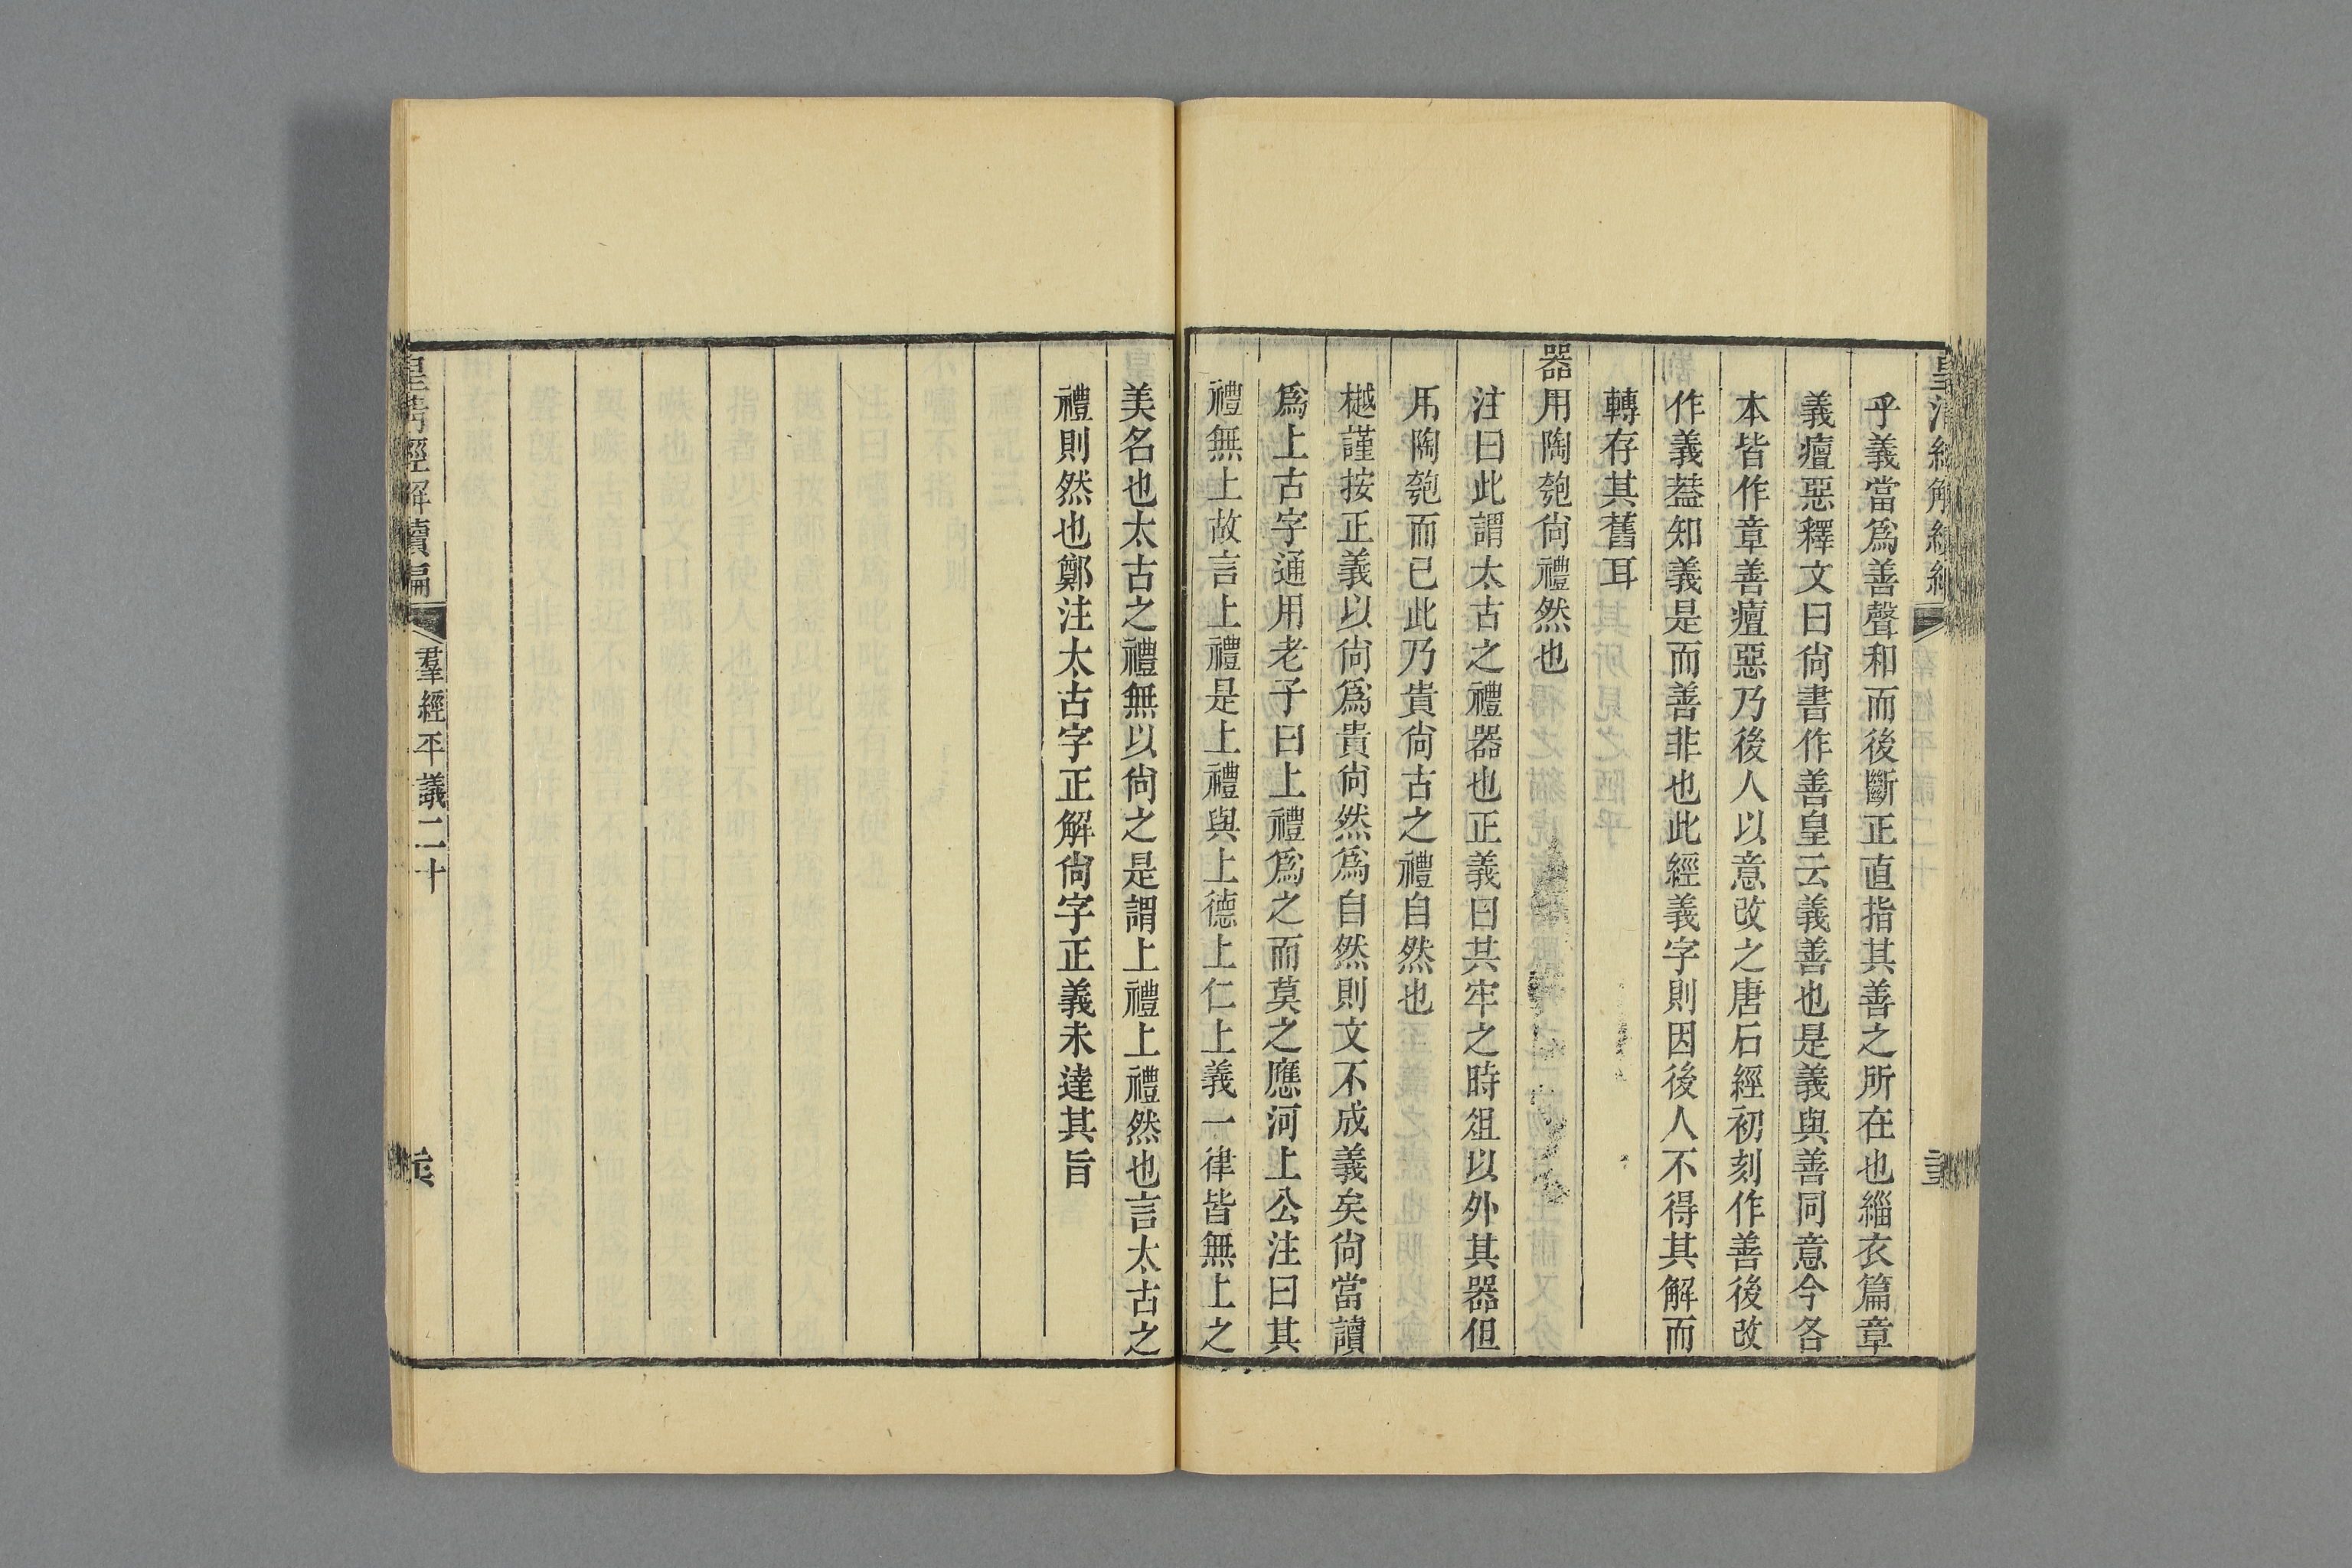 乎義當爲善聲和而後斷正直指其善之所在也緇衣篇章
義癉惡釋文曰尙書作善皇云義善也是義與善同意今各
本皆作章善癉惡乃後人以意改之唐石經初刻作善後改
作義葢知義是而善非也此經義字則因後人不得其解而
轉存其舊耳
器用陶匏尙禮然也
注曰此謂太古之禮器也正義曰共牢之時俎以外其器但
用陶匏而已此乃貴尙古之禮自然也
樾謹按正義以尙爲貴尙然爲自然則文不成義矣尙當讀
爲上古字通用老子曰上禮爲之而莫之應河上公注曰其
禮無上故言上禮是上禮與上德上仁上義一律皆無上之
美名也太古之禮無以尙之是謂上禮上禮然也言太古之
禮則然也鄭注太古字正解尙字正義未達其旨
皇清經解續編
羣經平議二十